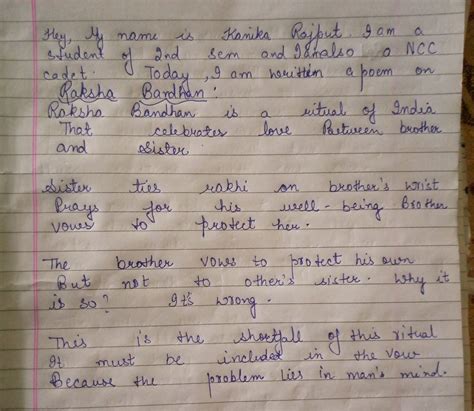 Hey, My name is Kanika Rajput. I am a
student of 2nd sem and I am also a NCC
cadet. Today, I am written a poem on
Raksha Bandhan:
Raksha Bandhan is a ritual of India
That celebrates love Between brother
and Sister.
Sister ties rakhi on brother's wrist
Prays for his well-being Brother
vows to protect her.
The brother vows to protect his own
But not to other's sister. Why it
is so? It's wrong.
This is the shortfall of this ritual
It must be included in the vow
Because the problem lies in man's mind.